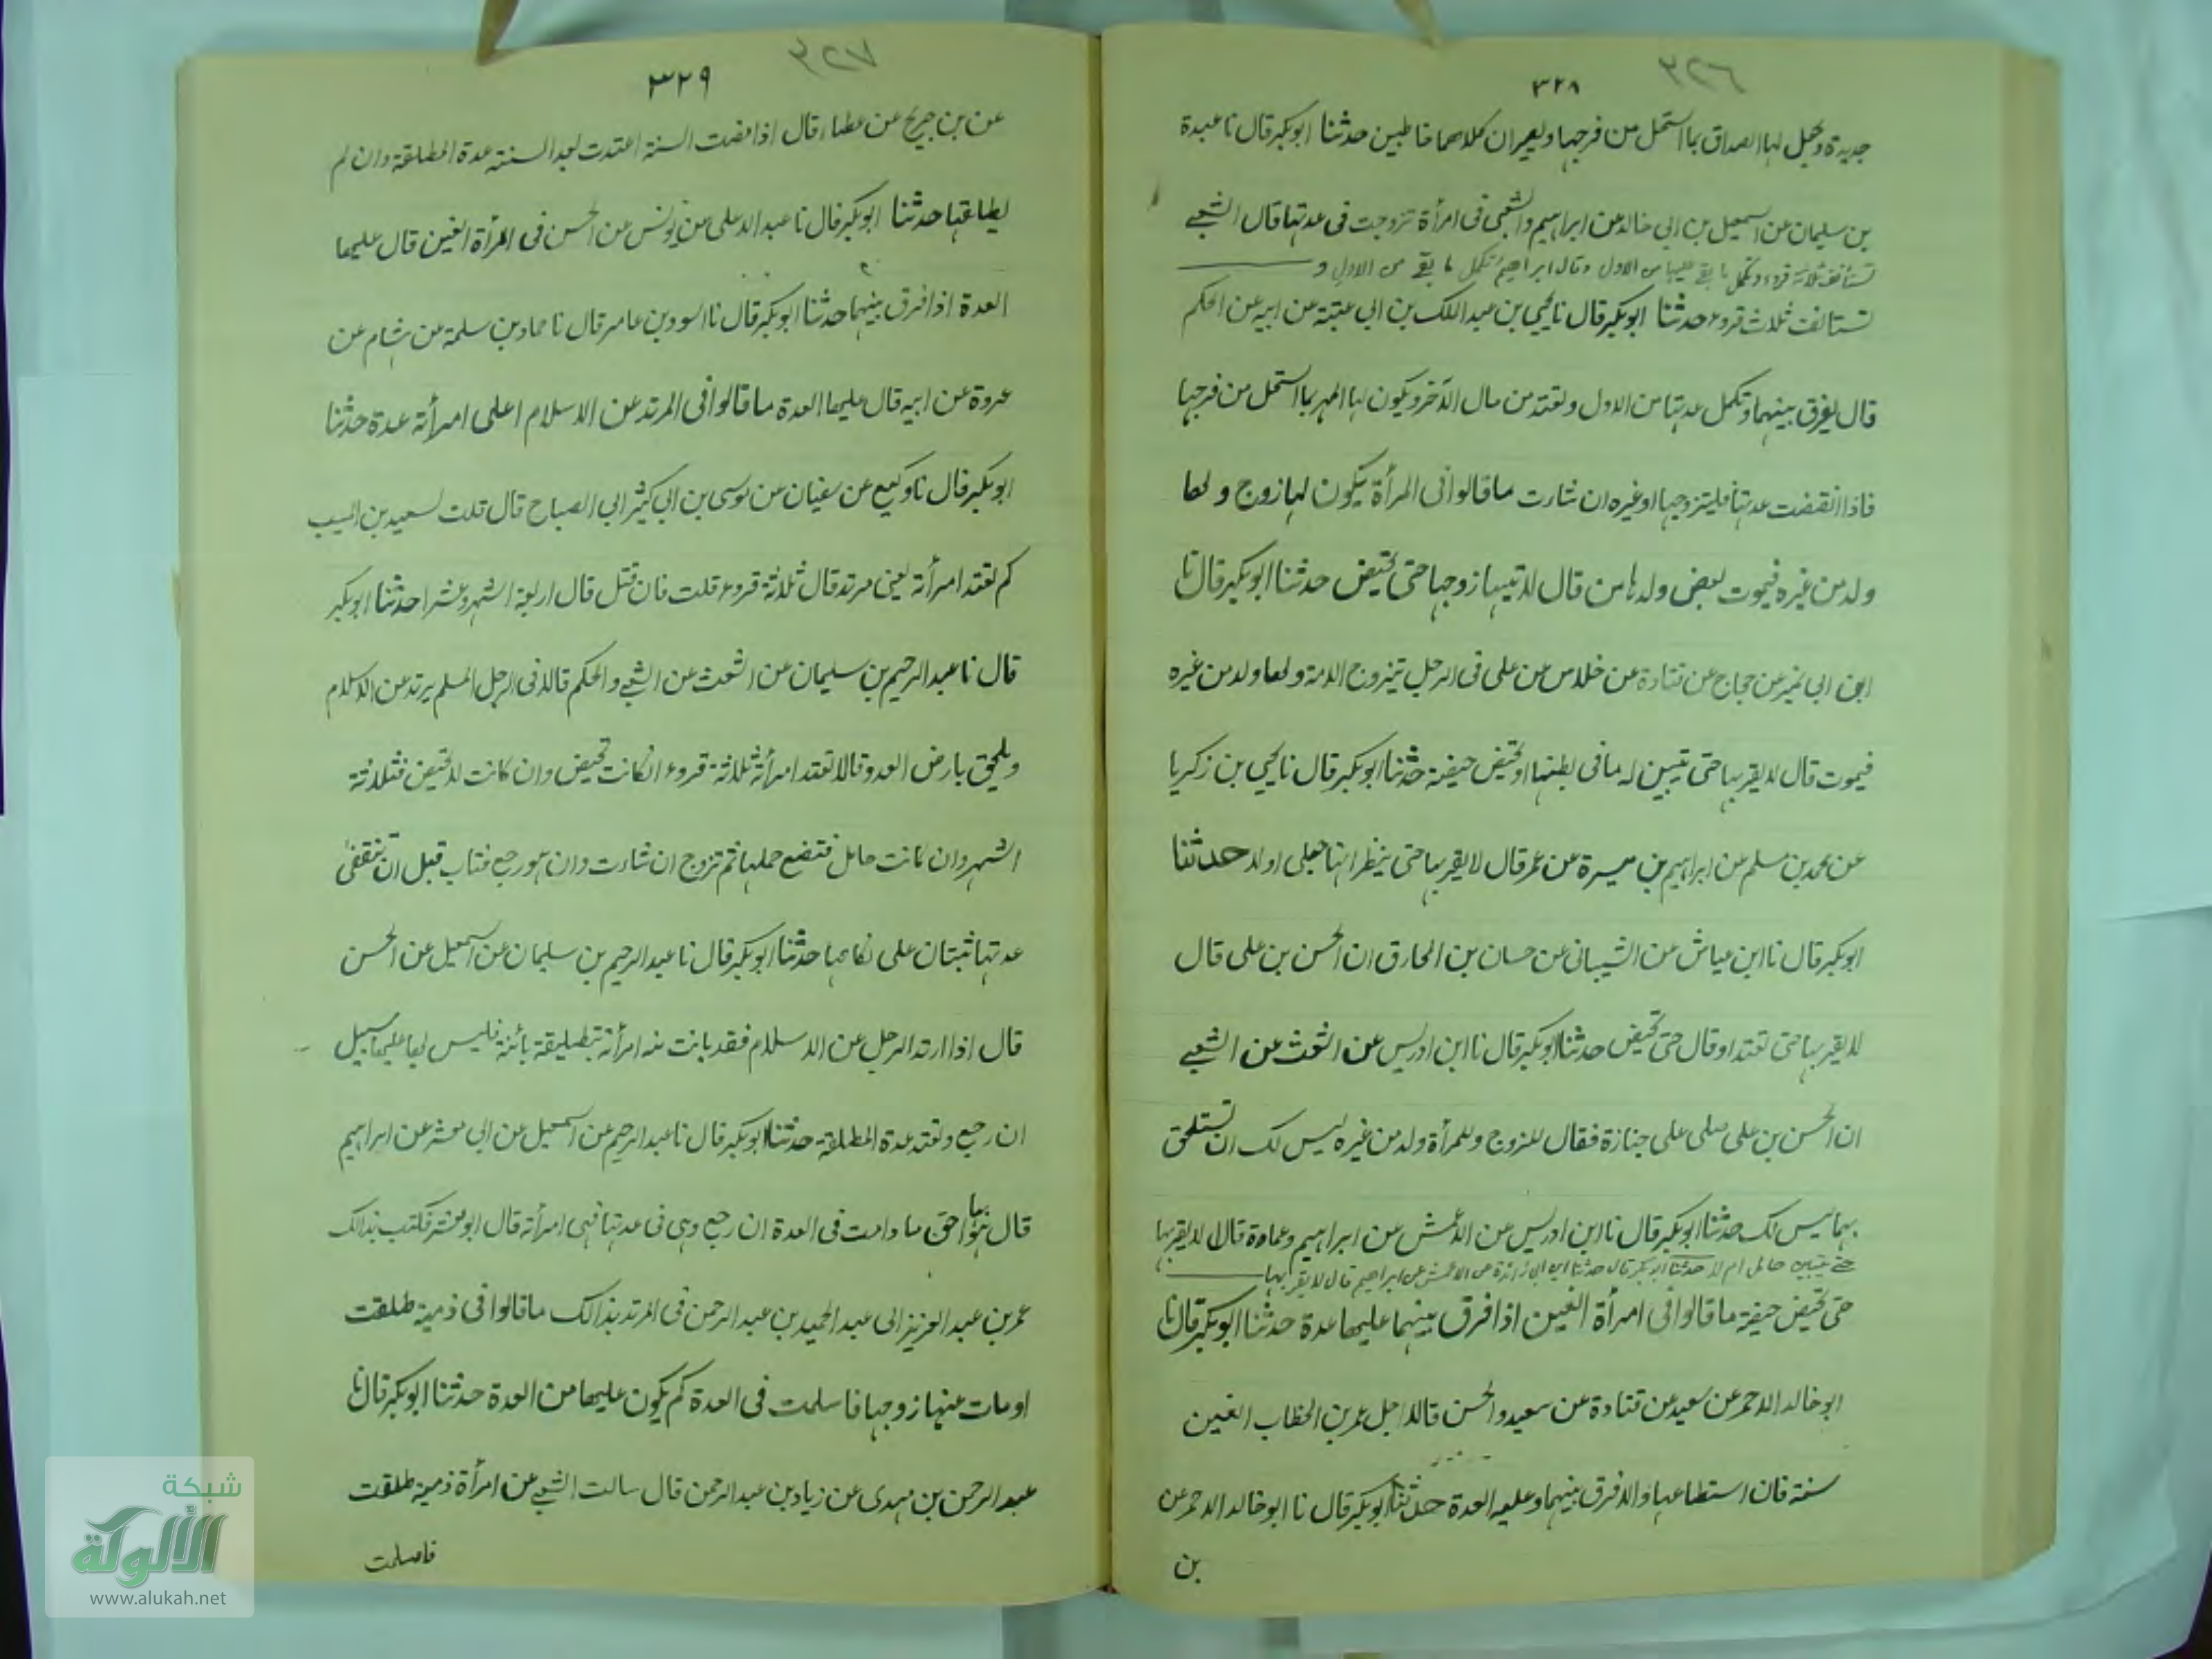 ٣٢٦
٣٢٨
جديدة ويجعل لها الصداق بما استحل من فرجها ويصيران كلاهما خاطبين حدثنا ابوبكر قال نا عبدة
بن سليمان عن اسمعيل بن ابي خالد عن ابراهيم والشعبي فى امرأة تزوجت فى عدتها قال الشعبي
تستأنف ثلاثة قروء وتكمل ما بقي عليها من الاول وقال ابراهيم تكمل ما بقي من الاول و
تستانف ثلاث قروء حدثنا ابوبكر قال نا يحيى بن عبد الملك بن ابي عتبة عن ابيه عن الحكم
قال يفرق بينهما وتكمل عدتها من الاول وتعتد من مال الآخر ويكون لها المهر بما استحل من فرجها
فاذا انقضت عدتها فليتزوجها او غيره ان شاءت ما قالوا فى المرأة يكون لها زوج ولها
ولد من غيره فيموت بعض ولدها من قال لا ياتيها زوجها حتى تحيض حدثنا ابوبكر قال نا
ابن ابي نمير عن حجاج عن قتادة عن خلاس عن على فى الرجل يتزوج الامة ولها ولد من غيره
فيموت قال لا يقربها حتى تبين له ما فى بطنها او تحيض حيضة حدثنا ابوبكر قال نا يحيى بن زكريا
عن محمد بن مسلم عن ابراهيم بن ميسرة عن عمر قال لا يقربها حتى ينظر انها حبلى او لا حدثنا
ابوبكر قال نا ابن عياش عن الشيبانى عن حسان بن المخارق ان الحسن بن على قال
لا يقربها حتى تعتد او قال حتى تحيض حدثنا ابوبكر قال نا ابن ادريس عن اشعث عن الشعبي
ان الحسن بن على صلى على جنازة فقال للزوج وللمرأة ولد من غيره ليس لك ان تستلحق
بهما ليس لك حدثنا ابوبكر قال نا ابن ادريس عن الاعمش عن ابراهيم وعمارة قالا لا يقربها
حتى يتبين حامل ام لا حدثنا ابوبكر قال حدثنا ابن ابي زائدة عن الاعمش عن ابراهيم قال لا يقربها
حتى تحيض حيضة ما قالوا فى امرأة العنين اذا فرق بينهما عليها عدة حدثنا ابوبكر قال نا
ابو خالد الاحمر عن سعيد عن قتادة عن سعيد والحسن قالا اجل عمر بن الخطاب العنين
سنة فان استطاعها والا فرق بينهما وعليه العدة حدثنا ابوبكر قال نا ابو خالد الاحمر عن
بن
٣٢٧
٣٢٩
عن بن جريج عن عطاء قال اذا مضت السنة اعتدت بعد السنة عدة المطلقة وان لم
يطلقها حدثنا ابوبكر قال نا عبد الاعلى عن يونس عن الحسن فى امرأة العنين قال عليها
العدة اذا فرق بينهما حدثنا ابوبكر قال نا اسود بن عامر قال نا حماد بن سلمة عن هشام عن
عروة عن ابيه قال عليها العدة ما قالوا فى المرتد عن الاسلام اعلى امرأته عدة حدثنا
ابوبكر قال نا وكيع عن سفيان عن موسى بن ابي كثير ابي الصباح قال قلت لسعيد بن المسيب
كم تعتد امرأته يعنى مرتد قال ثلاثة قروء قلت فان قتل قال اربعة اشهر وعشرا حدثنا ابوبكر
قال نا عبد الرحيم بن سليمان عن اشعث عن الشعبي والحكم قالا فى الرجل المسلم يرتد عن الاسلام
ويلحق بارض العدو قالا تعتد امرأته ثلاثة قروء ان كانت تحيض وان كانت لا تحيض فثلاثة
اشهر وان كانت حامل فتضع حملها ثم تزوج ان شاءت وان هو رجع فتاب قبل ان تنقضى
عدتها ثبتان على نكاحها حدثنا ابوبكر قال نا عبد الرحيم بن سليمان عن اسمعيل عن الحسن
قال اذا ارتد الرجل عن الاسلام فقد بانت منه امرأته بتطليقة بائنة فليس له عليها سبيل
ان رجع وتعتد عدة المطلقة حدثنا ابوبكر قال نا عبد الرحيم عن اسمعيل عن ابي معشر عن ابراهيم
قال هو احق بها ما دامت فى العدة ان رجع وهى فى عدتها فهى امرأته قال ابو معشر فكتب بذالك
عمر بن عبد العزيز الى عبد الحميد بن عبد الرحمن فى المرتد بذالك ما قالوا فى ذمية طلقت
او مات عنها زوجها فاسلمت فى العدة كم يكون عليها من العدة حدثنا ابوبكر قال نا
عبد الرحمن بن مهدى عن زياد بن عبد الرحمن قال سالت الشعبي عن امرأة ذمية طلقت
فاسلمت
شبكة
الألوكة
www.alukah.net